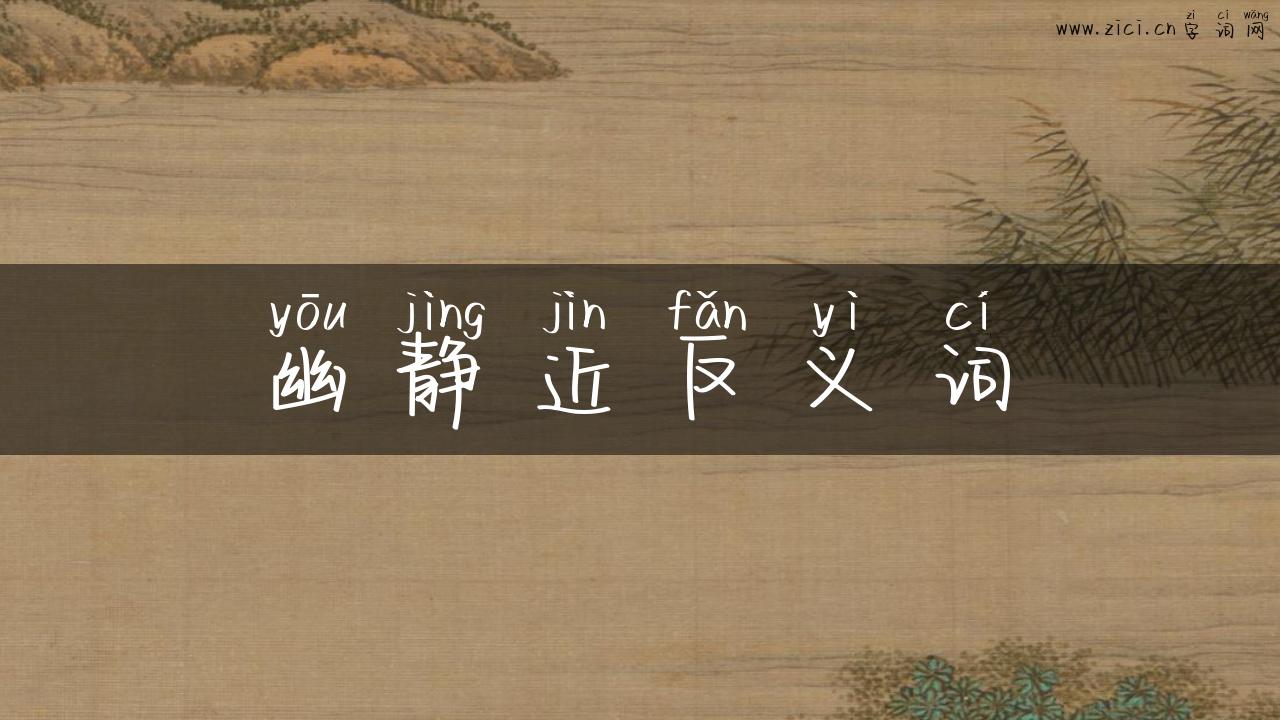 zì cí wǎng
www.zici.cn 字词网
yōu jìng jìn fǎn yì cí
幽静近反义词